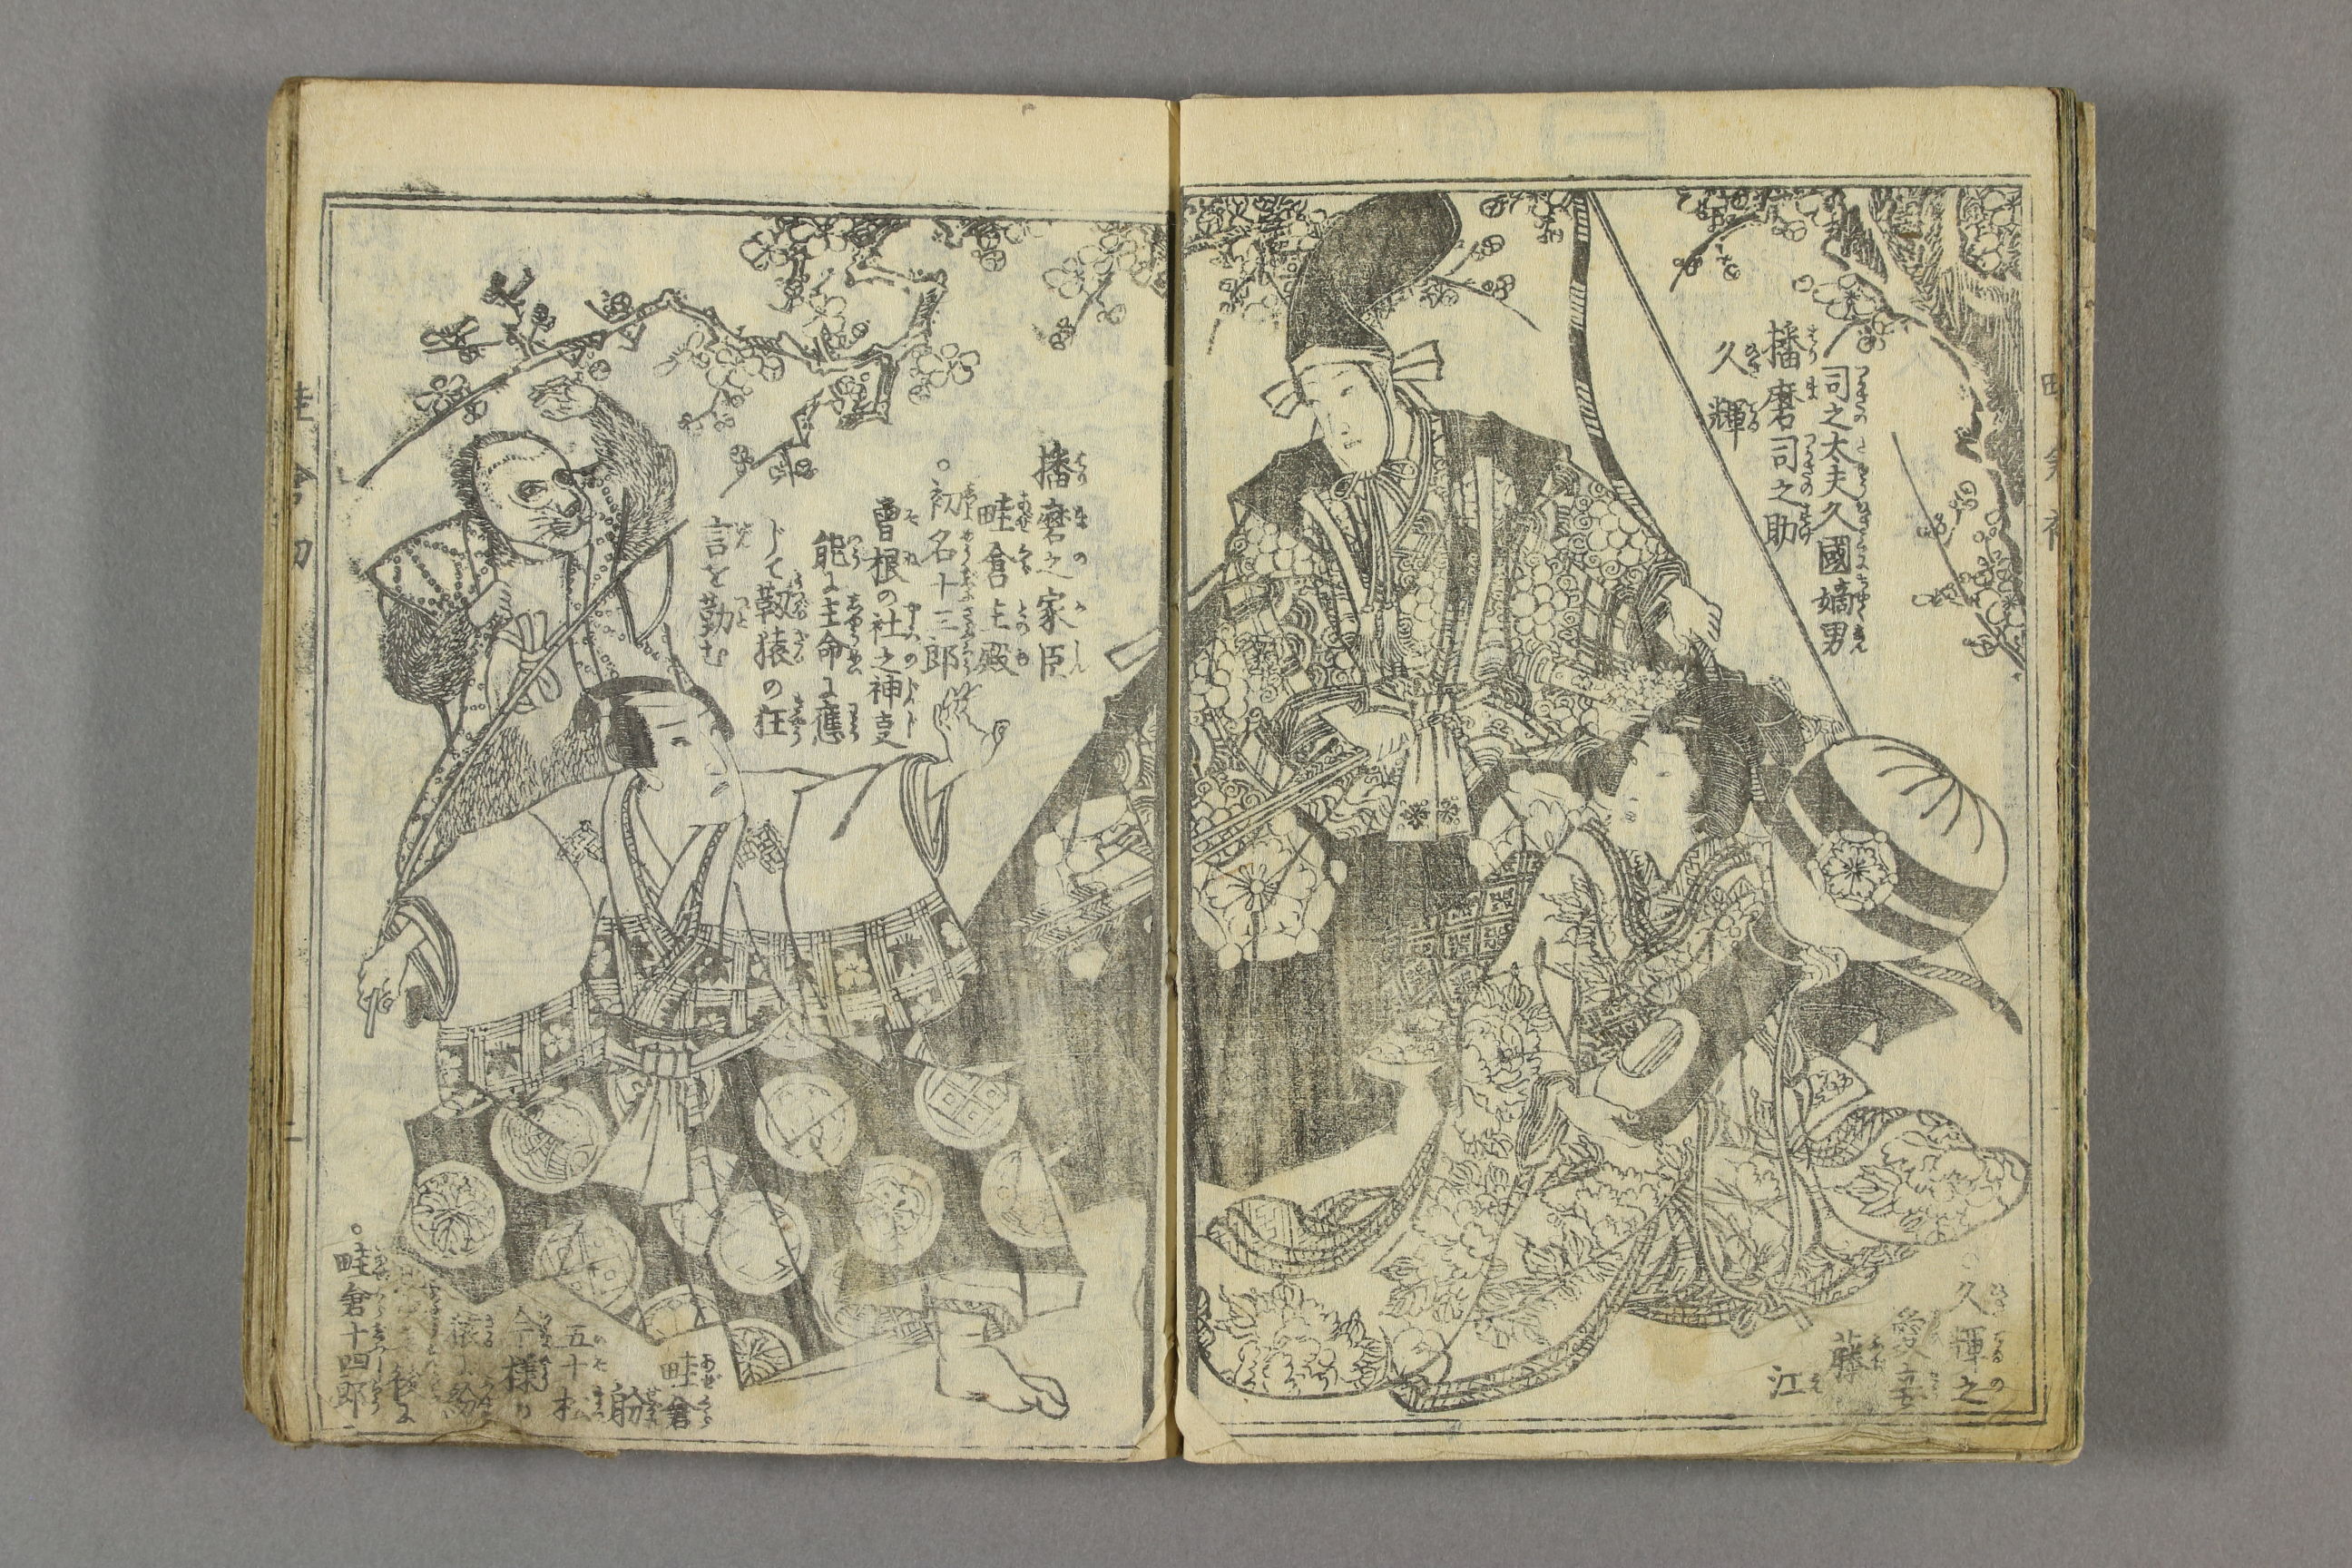 司之太夫久國嫡男
播磨司之助
久輝
久輝之
愛妾
藤江
播磨之家臣
畦倉主殿
初名十三郎
曽根の社之神支
能に主命に應
じて靱猿の狂
言を勤む
畦倉
舩
五十松
今様の
猿に紛
畦倉十四郎